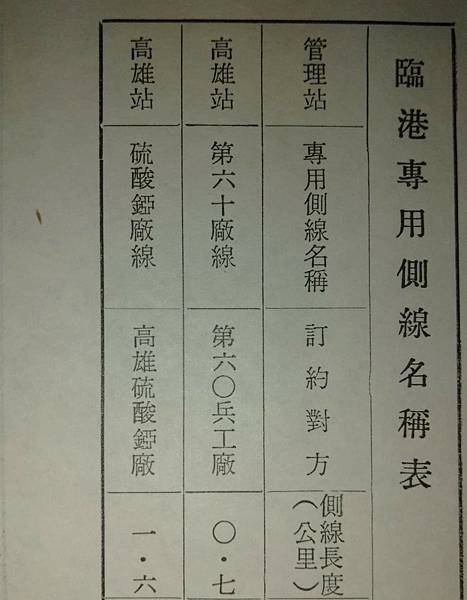 臨港專用側線名稱表
管理站
專用側線名稱
訂約對方
側線長度
（公里）
高雄站
第六十廠線
第六〇兵工廠
〇・七
高雄站
硫酸錏廠線
高雄硫酸錏廠
一・六